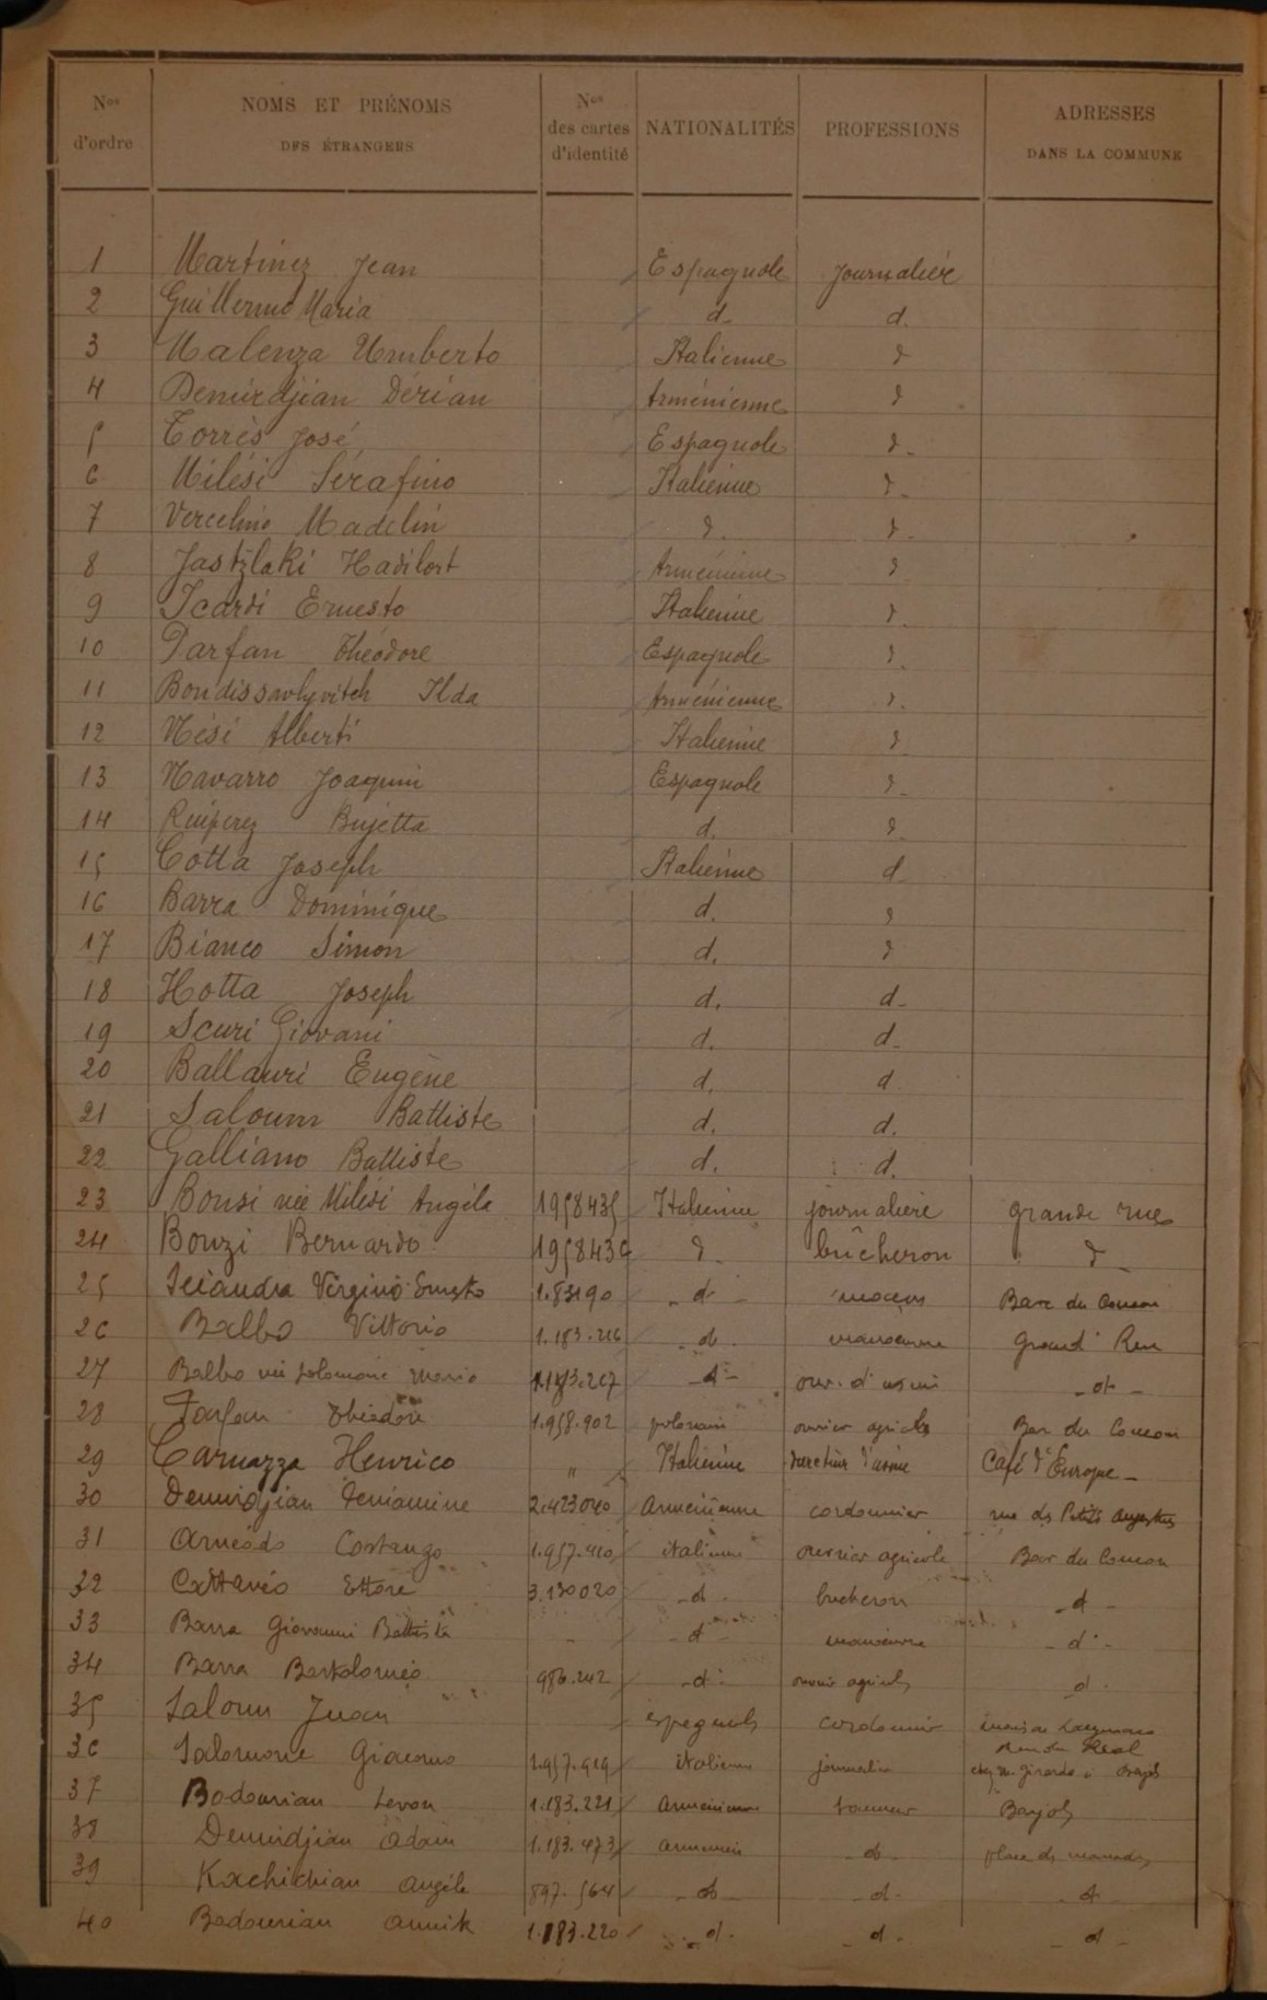 Nos d'ordre | NOMS ET PRÉNOMS DES ÉTRANGERS | Nos des cartes d'identité | NATIONALITÉS | PROFESSIONS | ADRESSES DANS LA COMMUNE
1 Martinez Jean Espagnole journalière
2 Guillermo Maria d. d.
3 Malenza Umberto Italienne d
4 Demirdjian Dérian Arménienne d
5 Torrès José Espagnole d.
6 Milési Sérafino Italienne d.
7 Vercelino Madelin d. d.
8 Jastzlaki Hadilort Arménienne d
9 Icardi Ernesto Italienne d.
10 Parfan Théodore Espagnole d.
11 Ilda Arménienne d.
12 Mési Alberti Italienne d
13 Navarro Joaquin Espagnole d.
14 Ruiperez Bujetta d. d
15 Cotta Joseph Italienne d
16 Barra Dominique d. d
17 Bianco Simon d. d
18 Hotta Joseph d. d.
19 Scuri Giovani d. d.
20 Ballauri Eugène d. d
21 Saloum Battiste d. d.
22 Galliano Battiste d. d.
23 Bonsi née Milési Angéla 1958435 Italienne journalière grande rue
24 Bonzi Bernardo 195843 d. bûcheron d
25 Virginio Ernesto d maçon Bar du
26 Balbo Vittorio 1.183.216 d. manoeuvre Grand' Rue
27 Balbo née Salomone Maria d ouv. d'usine d
28 Théodore 1.958.902 polonais ouvrier agricole Bar du
29 Caruazza Henrico " Italienne directeur d'usine Café d'Europe
30 Demirdjian 2.423040 Arménienne cordonnier rue des Petits
31 Arnéodo Costanzo 1.957.410 italienne ouvrier agricole Bar du
32 Cattanéo Ettore 3.130020 d. bucheron d
33 Barra Giovanni Battista - d manoeuvre d
34 Barra Bartoloméo 986.242 d ouvrier agricole d.
35 Saloum Juan espagnole cordonnier maison
rue du Réal
36 Salomone Giacomo 1.957.919 italienne journalier chez M. Girardo à
37 Badourian Levon 1.183.221 Arménienne tanneur Barjols
38 Demirdjian Adam 1.183.473 arménien d. place de
39 Kachichian Angèle 897.564 d d. d
40 Badourian Annik 1.183.220 d. d. d